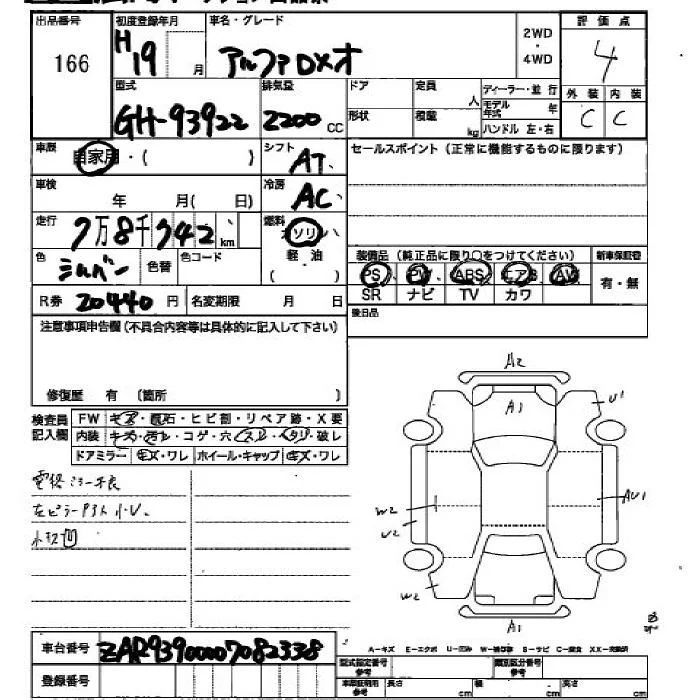 出品番号 初度登録年月 車名・グレード 2WD・4WD 評価点
166 H19 月 アルファDXオ 4
型式 排気量 ドア 定員 人 ディーラー・並行 外装 内装
GH-93922 2200 CC 形状 積載 kg モデル年式 年 C C
ハンドル 左・右
車歴 自家用・( ) シフト AT セールスポイント(正常に機能するものに限ります)
車検 年 月( 日) 冷房 AC
走行 7万8千342 km 燃料 ガソリン
軽・油
( )
色 シルバー 色替 色コード
装備品(純正品に限り○をつけてください) 新車保証書
PS PW ABS エアB AW 有・無
SR ナビ TV カワ
R券 20440 円 名変期限 月 日
後日品
注意事項申告欄(不具合内容等は具体的に記入して下さい)
修復歴 有 (箇所 )
検査員記入欄 FW キズ・飛石・ヒビ割・リペア跡・X要
内装 キズ・汚レ・コゲ・穴・スレ・ヘタリ・破レ
ドアミラー キズ・ワレ ホイール・キャップ キズ・ワレ
A2
A1
U1
W2
U2
AU1
W2
A1
車台番号 ZAR93900007082338
A-キズ E-エクボ U-凹み W-補修跡 S-サビ C-腐食 XX-交換済
登録番号
型式指定番号 参考 類別区分番号 参考
車庫証明用 参考 長さ cm 幅 cm 高さ cm